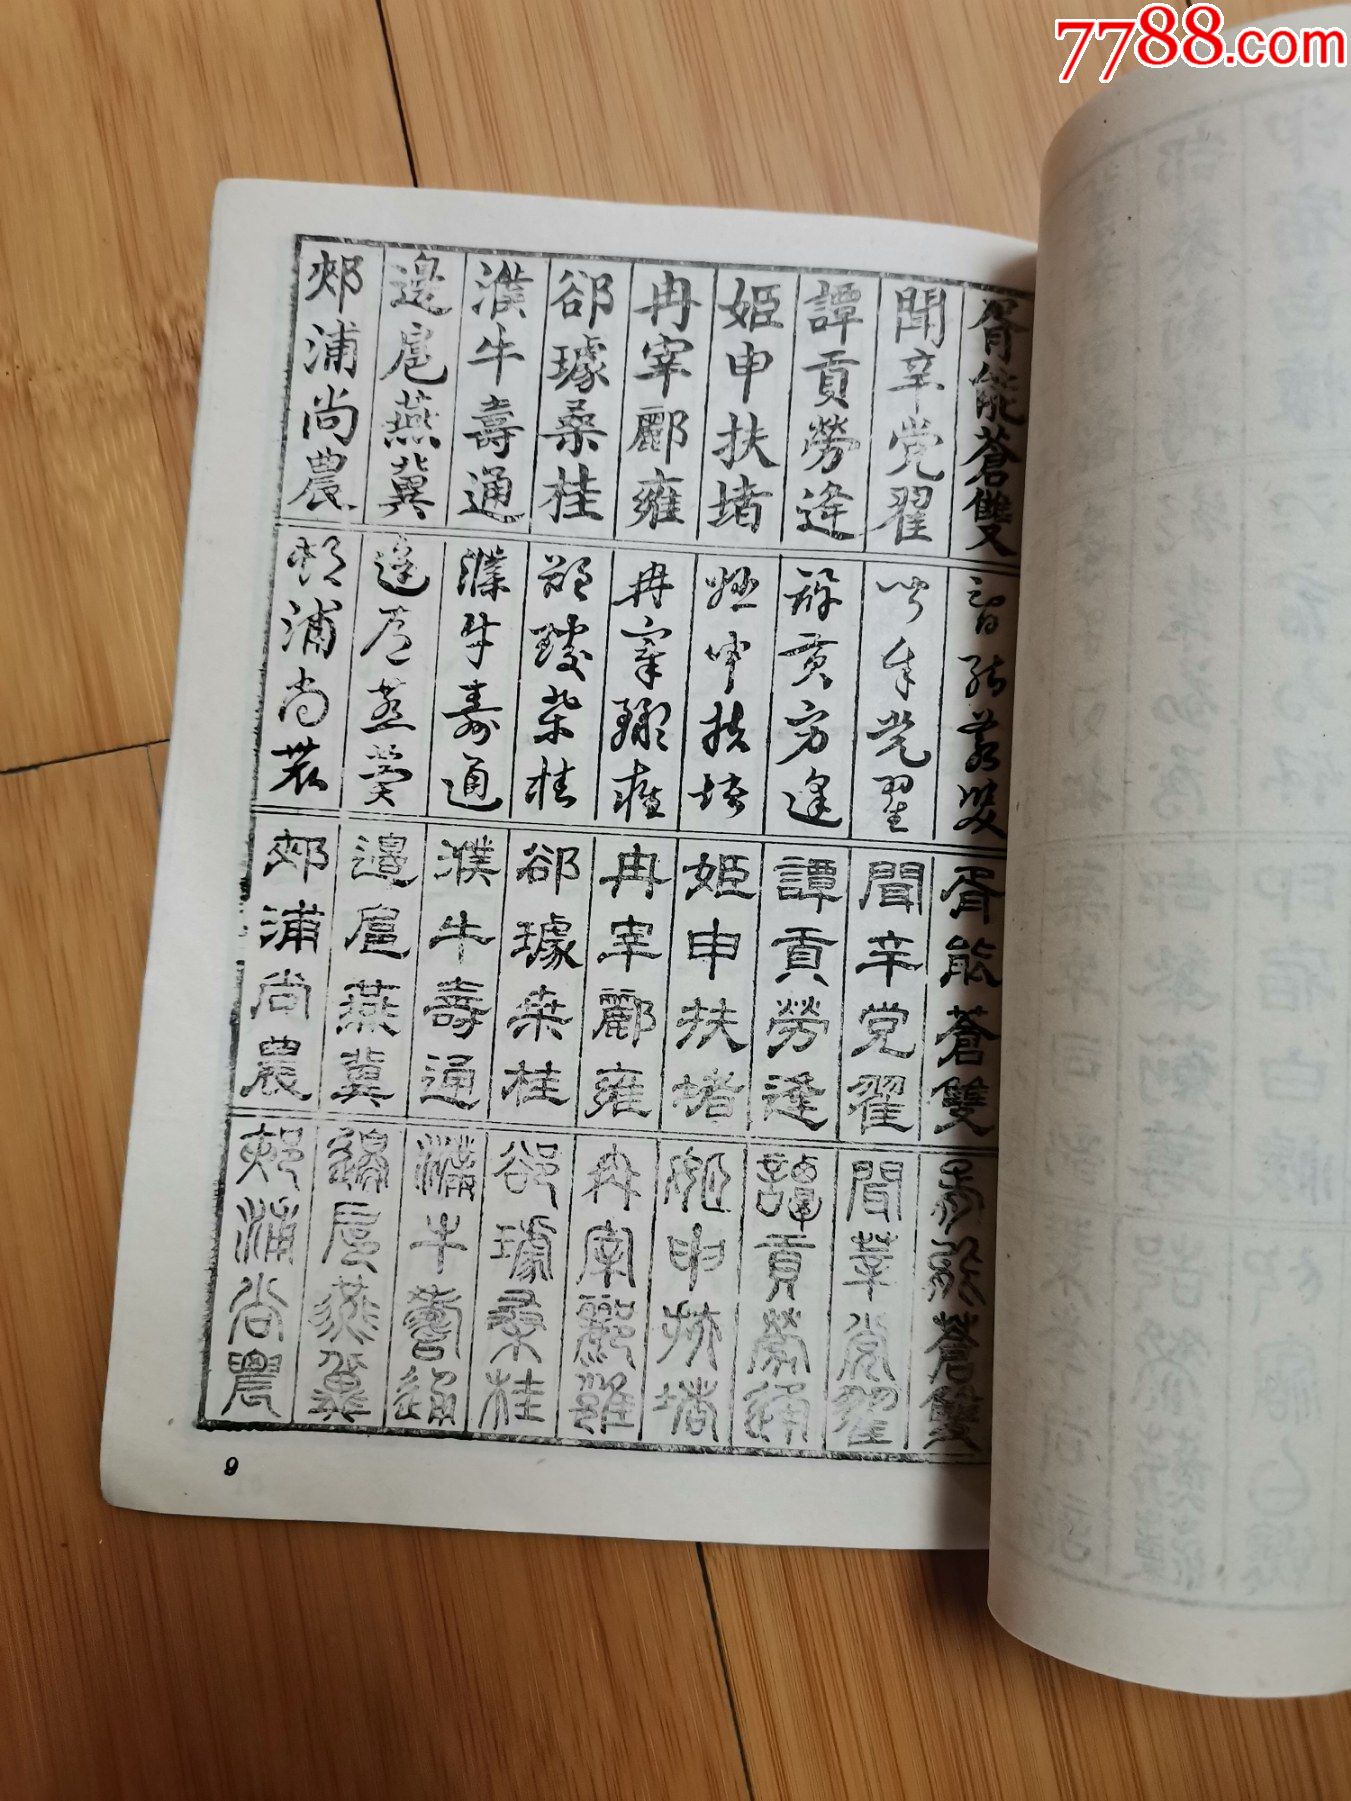 7788.com
胥能蒼雙
聞辛党翟
譚貢勞逄
姬申扶堵
冉宰酈雍
郤璩桑桂
濮牛壽通
邊扈燕冀
郟浦尚農
胥能蒼雙
聞辛党翟
譚貢勞逄
姬申扶堵
冉宰酈雍
郤璩桑桂
濮牛壽通
邊扈燕冀
郟浦尚農
胥能蒼雙
聞辛党翟
譚貢勞逄
姬申扶堵
冉宰酈雍
郤璩桒桂
濮牛壽通
邊扈燕冀
郟浦尚農
胥能蒼雙
聞莘党翟
譚貢勞逄
姬申扶堵
冉宰酈雍
郤璩桑桂
濮牛壽通
邊扈燕冀
郟浦尚農
9